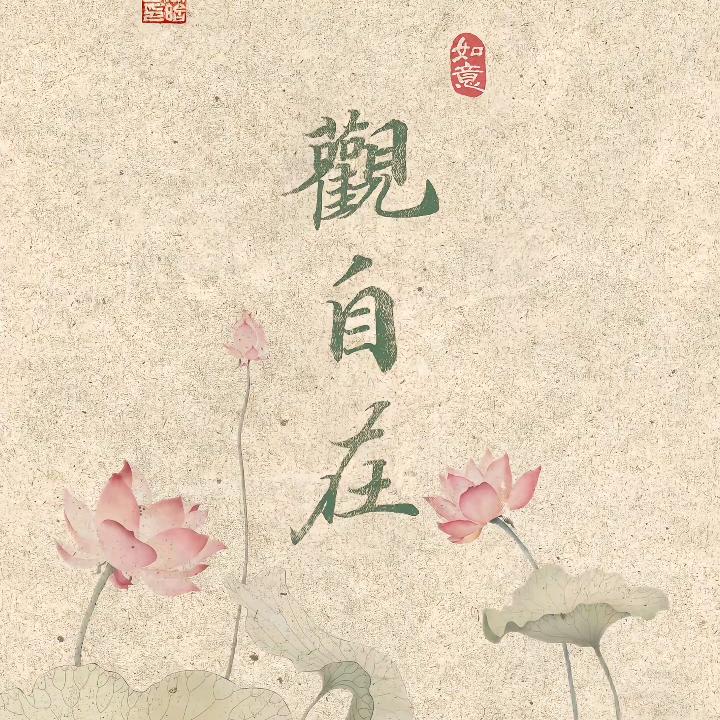 如意
觀自在